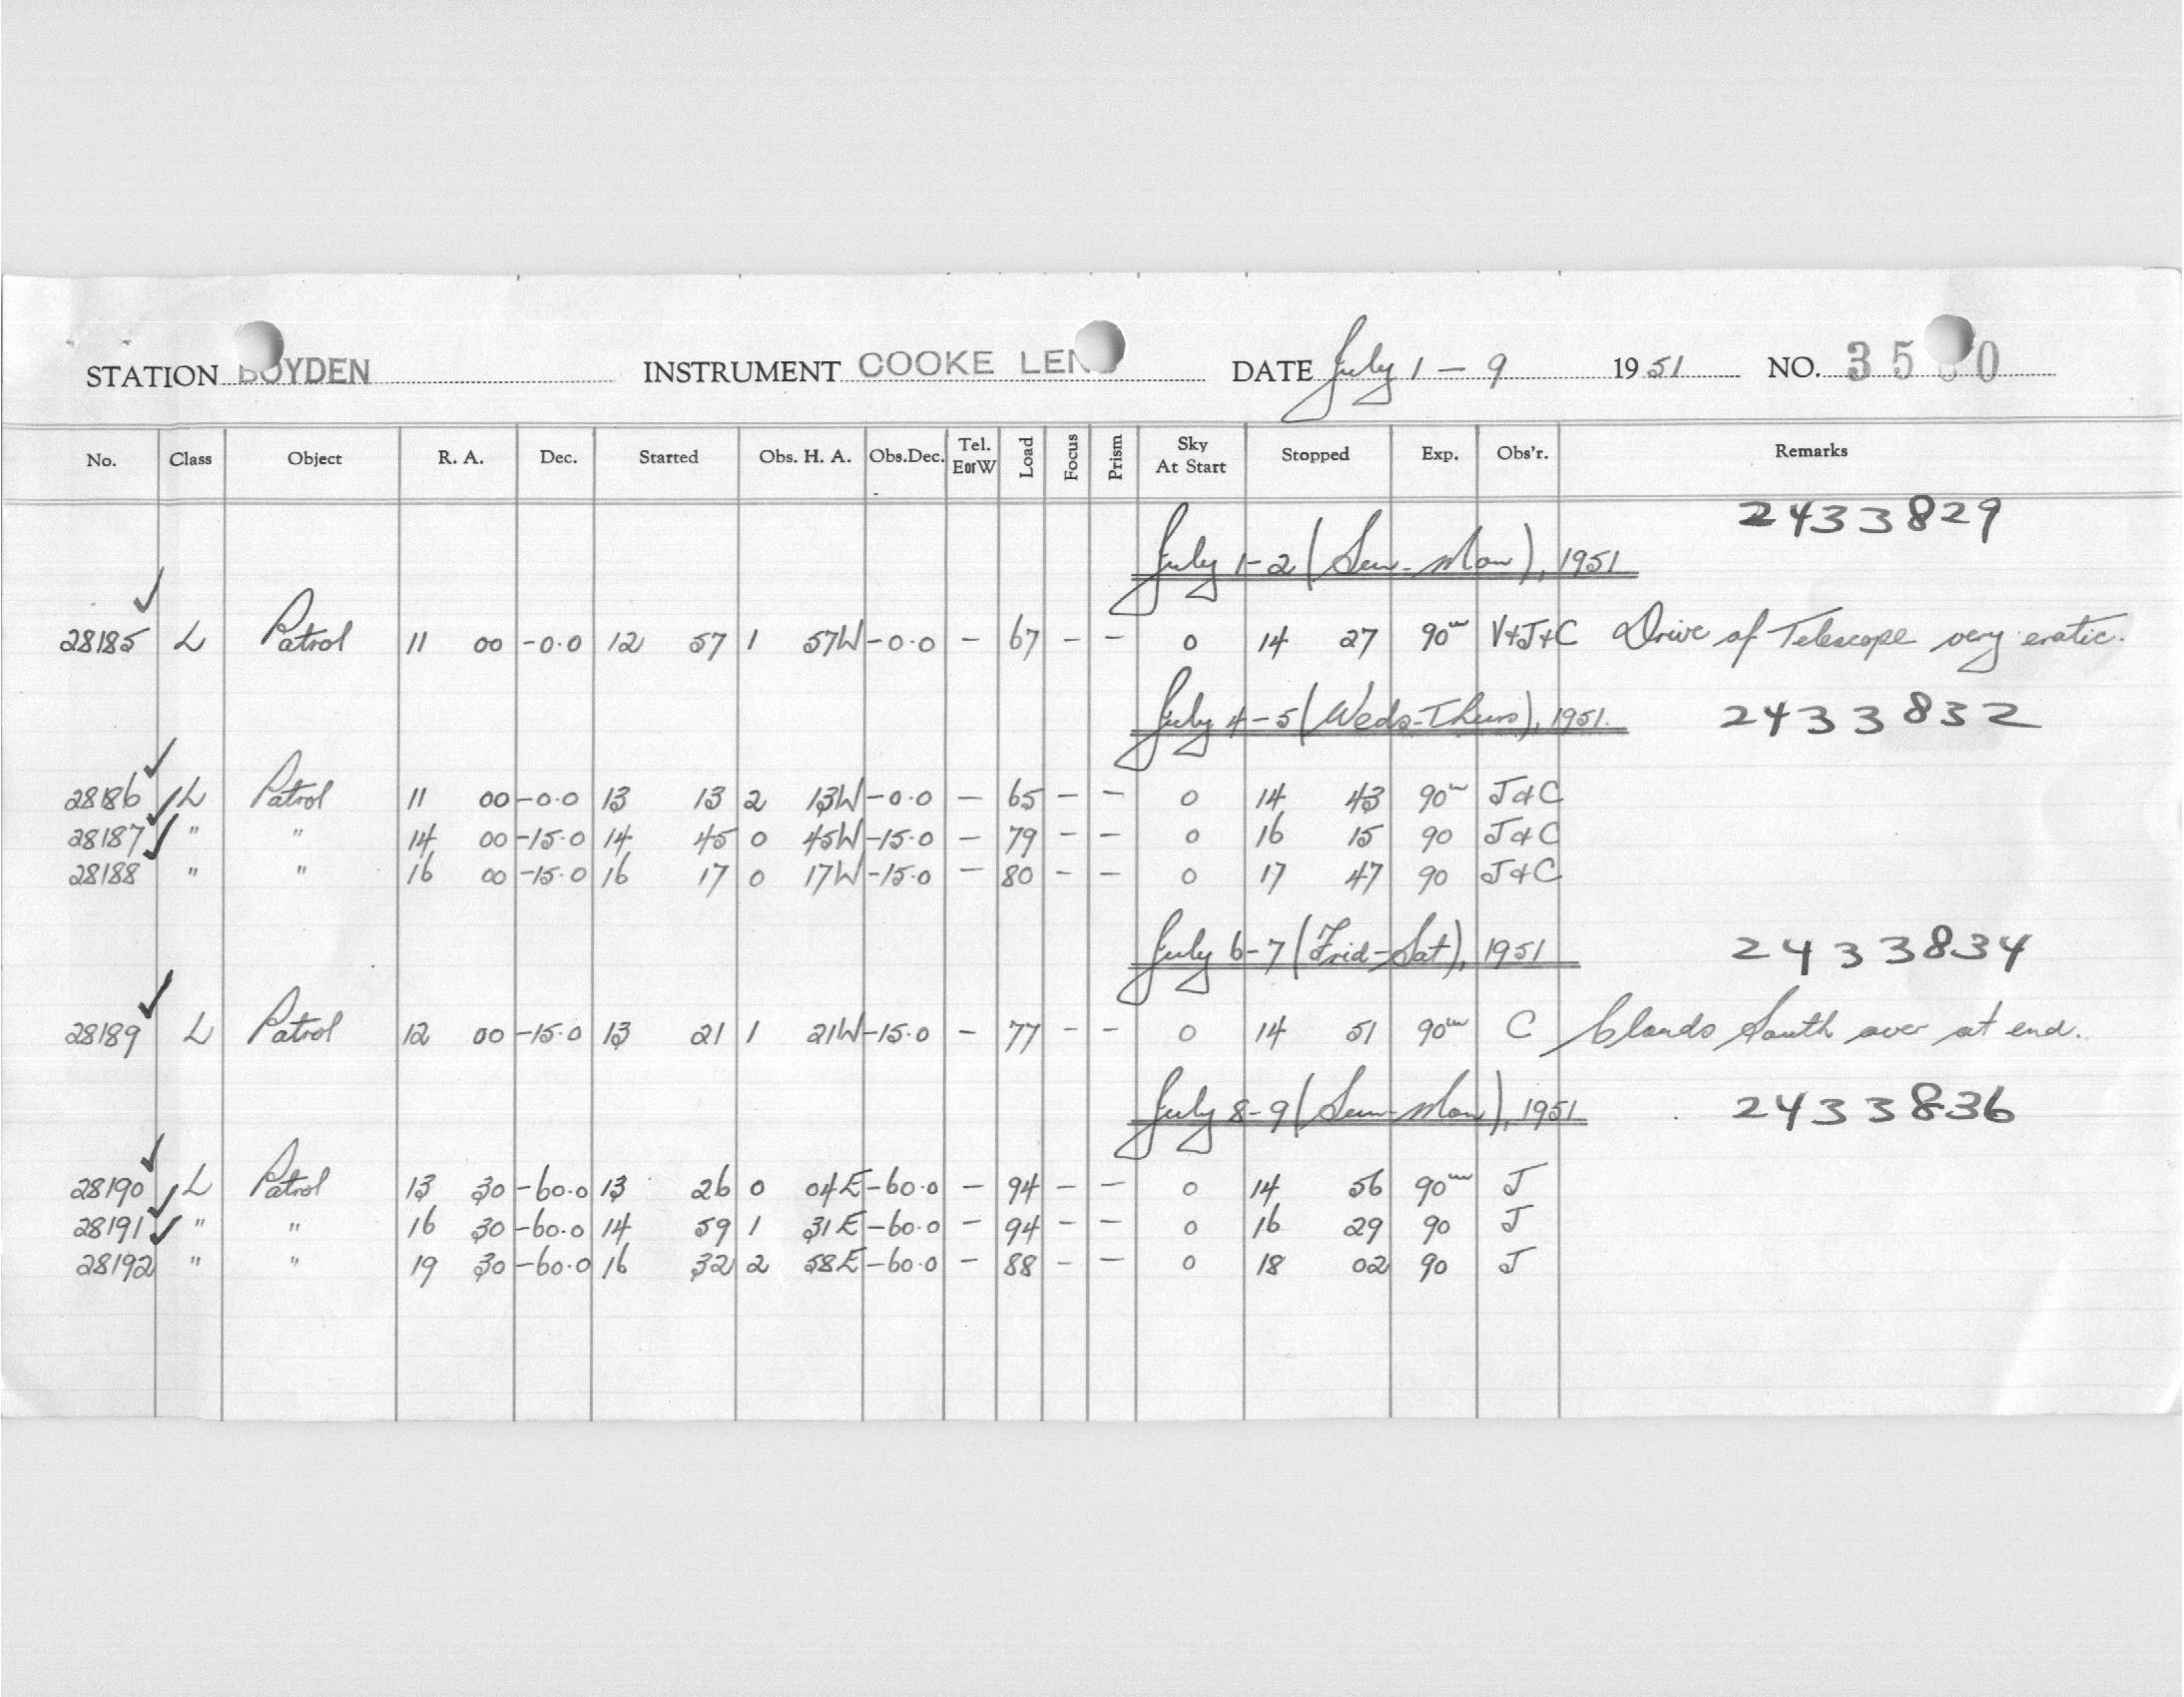 STATION BOYDEN INSTRUMENT COOKE LENS DATE July 1 - 9 1951 NO.
No. Class Object R. A. Dec. Started Obs. H. A. Obs.Dec. Tel. EorW Load Focus Prism Sky At Start Stopped Exp. Obs'r. Remarks
2433829
July 1-2 (Sun-Mon), 1951
28185 L Patrol 11 00 -0.0 12 57 1 57W -0.0 - 67 - - 0 14 27 90m V+J+C Drive of Telescope very eratic.
July 4-5 (Weds-Thurs), 1951. 2433832
28186 L Patrol 11 00 -0.0 13 13 2 13W -0.0 - 65 - - 0 14 43 90m J&C
28187 " " 14 00 -15.0 14 45 0 45W -15.0 - 79 - - 0 16 15 90 J&C
28188 " " 16 00 -15.0 16 17 0 17W -15.0 - 80 - - 0 17 47 90 J&C
July 6-7 (Frid-Sat), 1951 2433834
28189 L Patrol 12 00 -15.0 13 21 1 21W -15.0 - 77 - - 0 14 51 90m C Clouds South over at end.
July 8-9 (Sun-Mon), 1951. 2433836
28190 L Patrol 13 30 -60.0 13 26 0 04E -60.0 - 94 - - 0 14 56 90m J
28191 " " 16 30 -60.0 14 59 1 31E -60.0 - 94 - - 0 16 29 90 J
28192 " " 19 30 -60.0 16 32 2 58E -60.0 - 88 - - 0 18 02 90 J